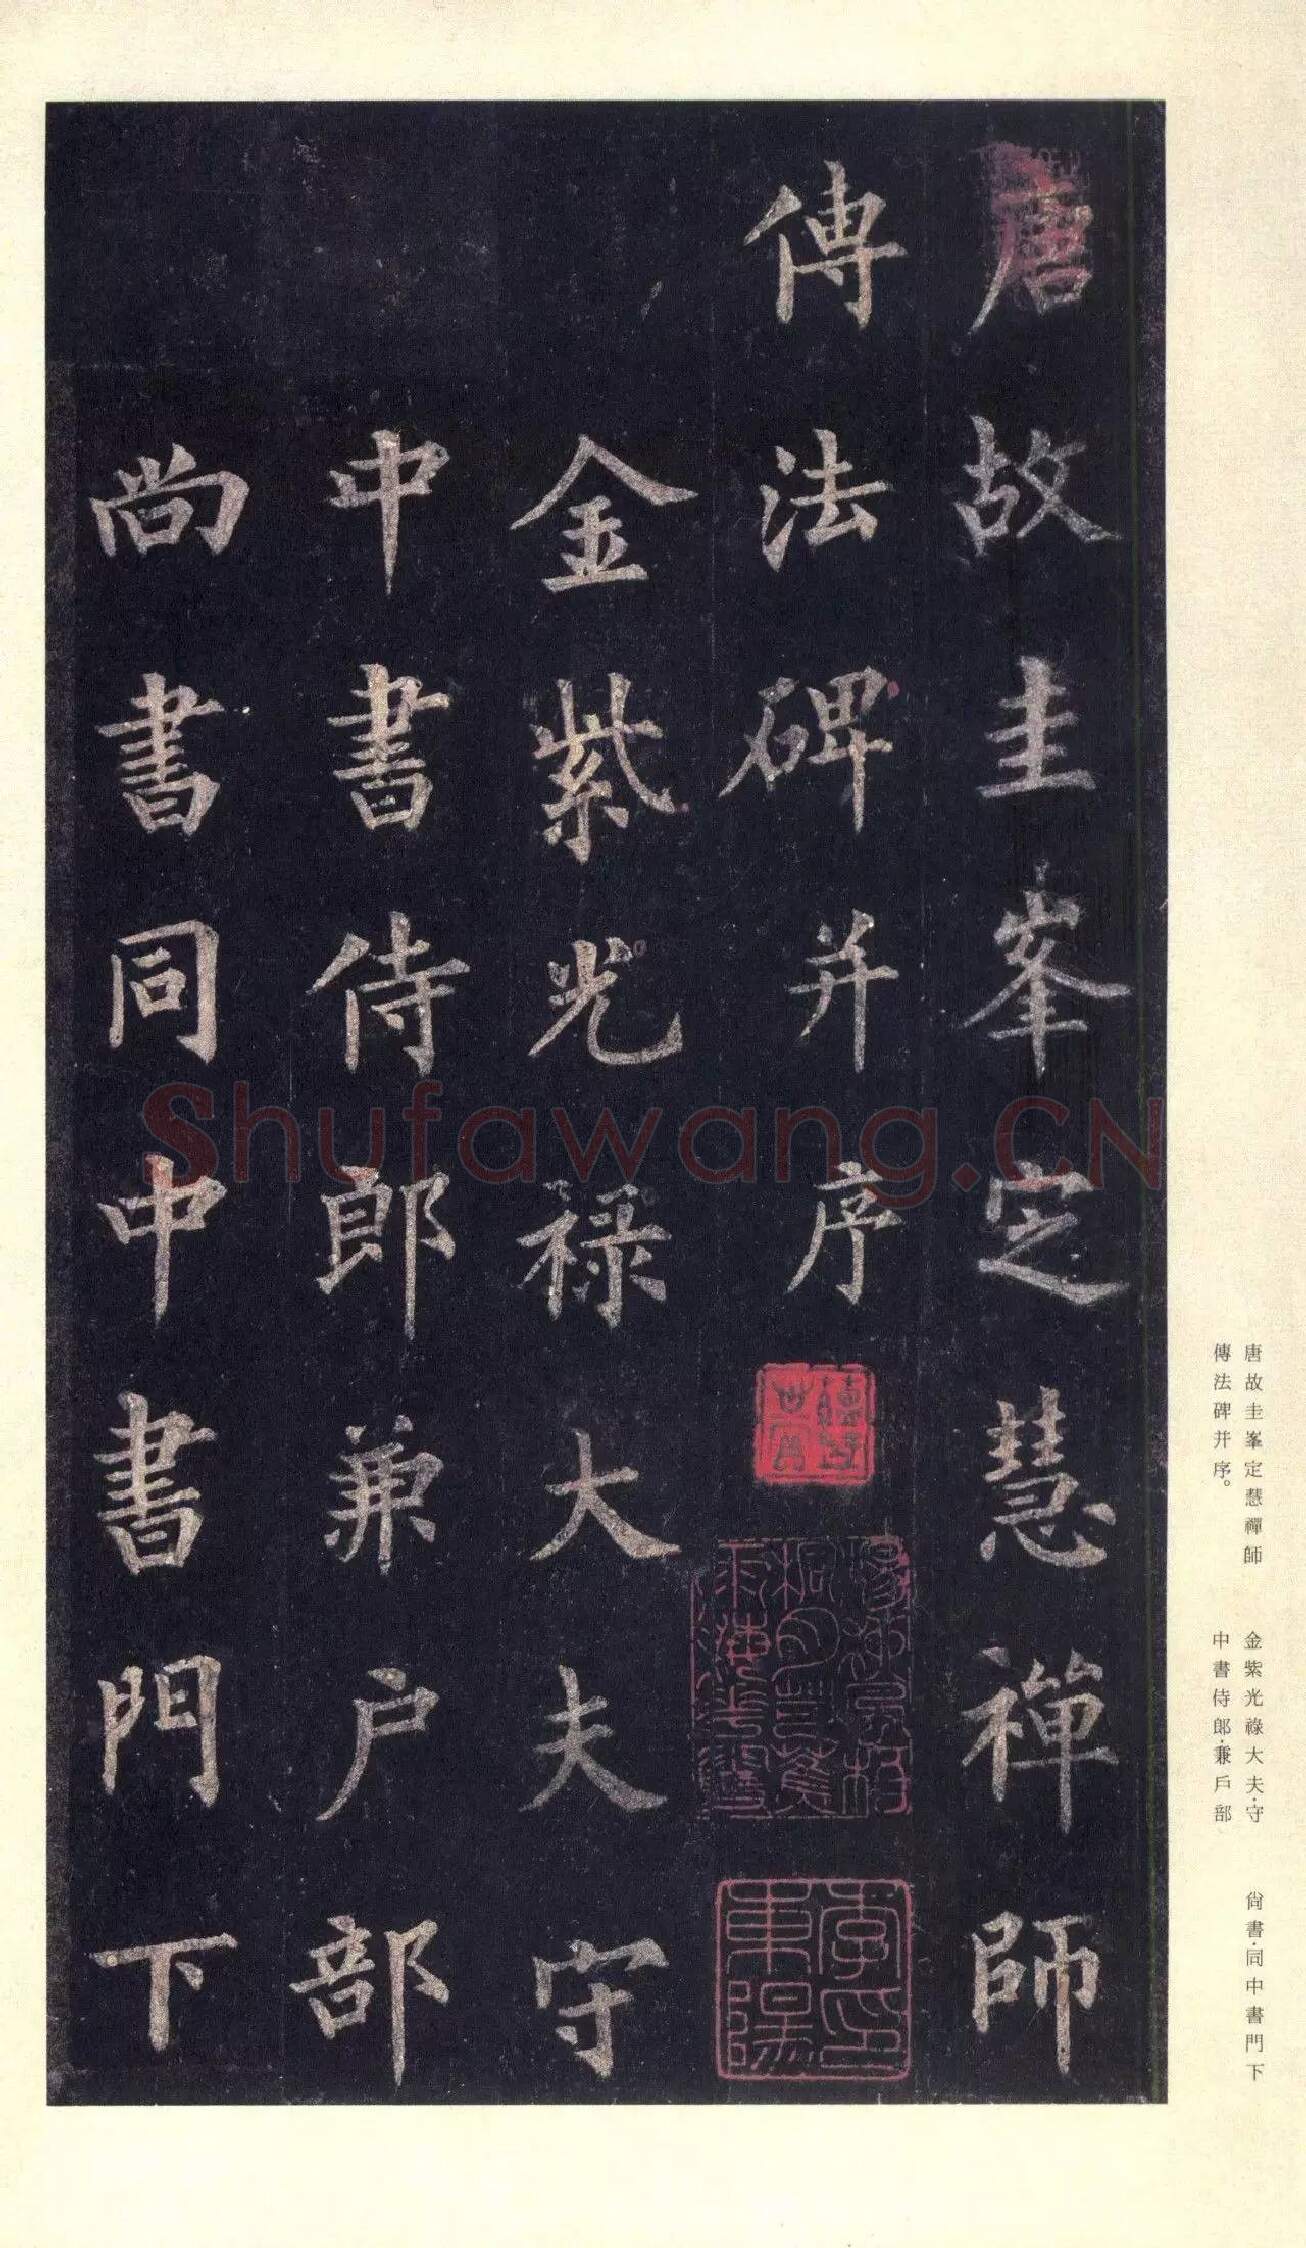 唐故圭峯定慧禪師
傳法碑并序
金紫光祿大夫守
中書侍郎兼户部
尚書同中書門下
唐故圭峯定慧禪師
傳法碑并序。
金紫光祿大夫·守
中書侍郎·兼戶部
尙書·同中書門下
Shufawang.CN